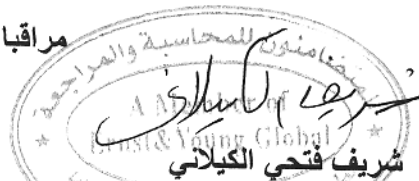 مراقبا
المتضامنون للمحاسبة والمراجعة
A Member of
Ernst & Young Global
شريف فتحي الكيلاني